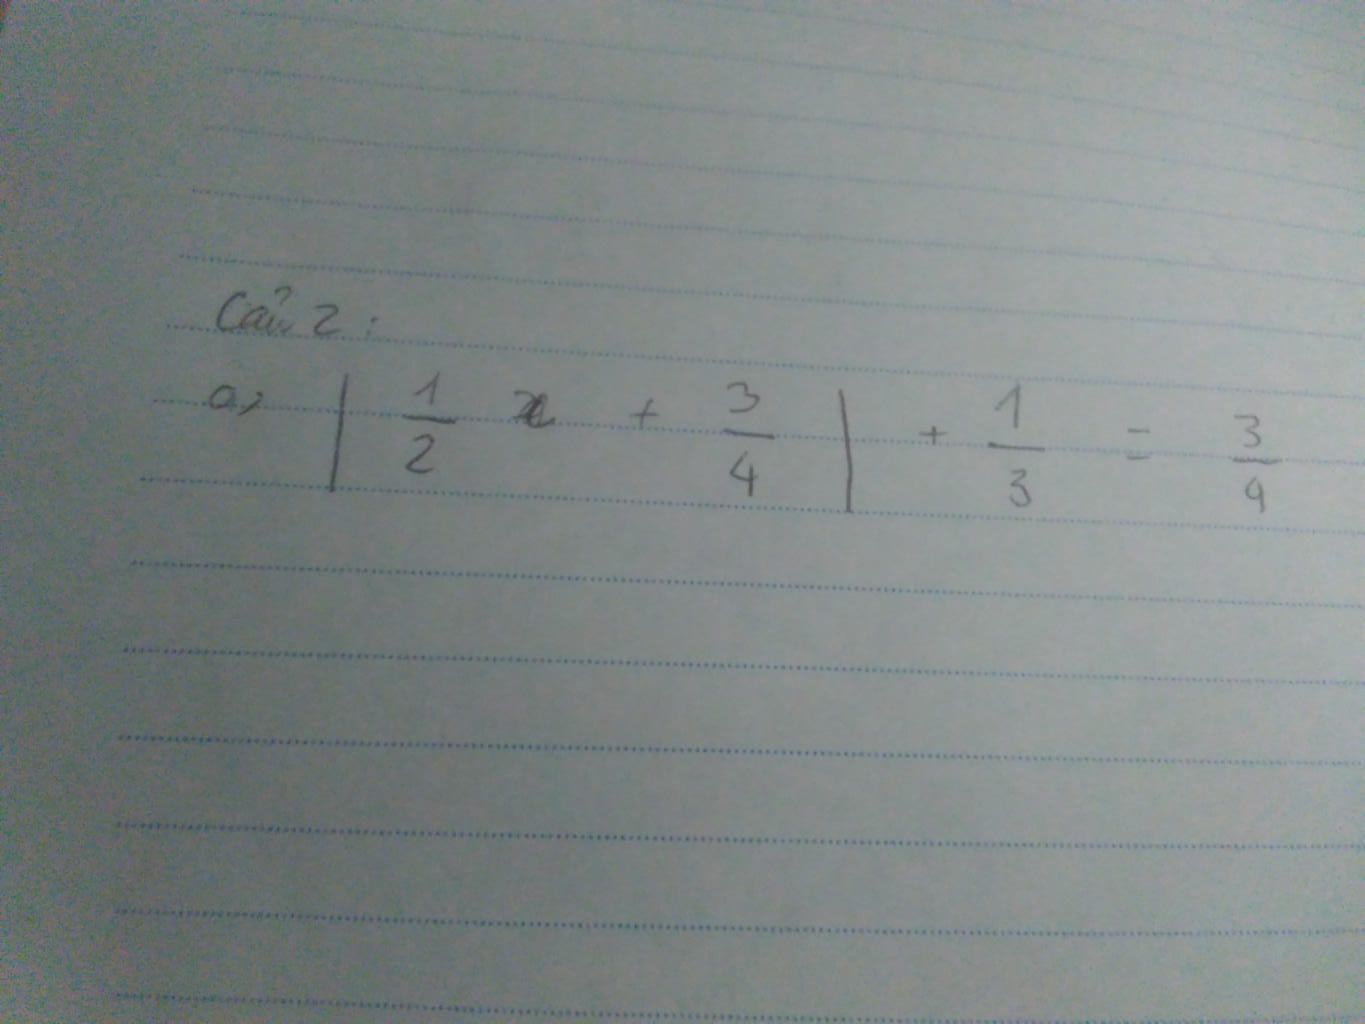 Câu 2:
a, | 1/2 x + 3/4 | + 1/3 = 3/4